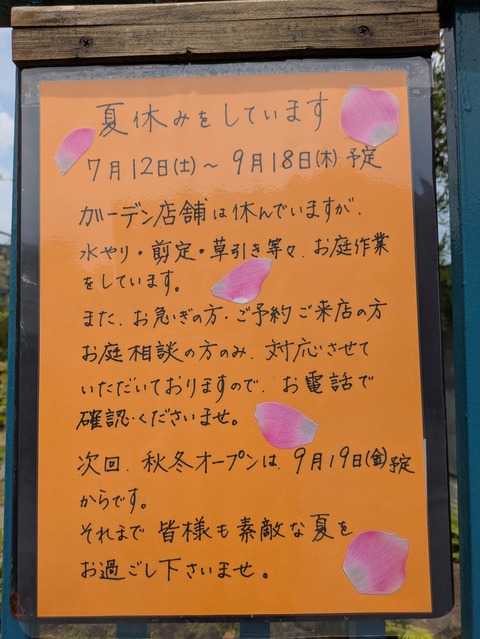 夏休みをしています
7月12日(土)～9月18日(木)予定
ガーデン店舗は休んでいますが、
水やり・剪定・草引き等々、お庭作業
をしています。
また、お急ぎの方・ご予約ご来店の方
お庭相談の方のみ、対応させて
いただいておりますので、お電話で
確認くださいませ。
次回、秋冬オープンは、9月19日(金)予定
からです。
それまで皆様も素敵な夏を
お過ごし下さいませ。